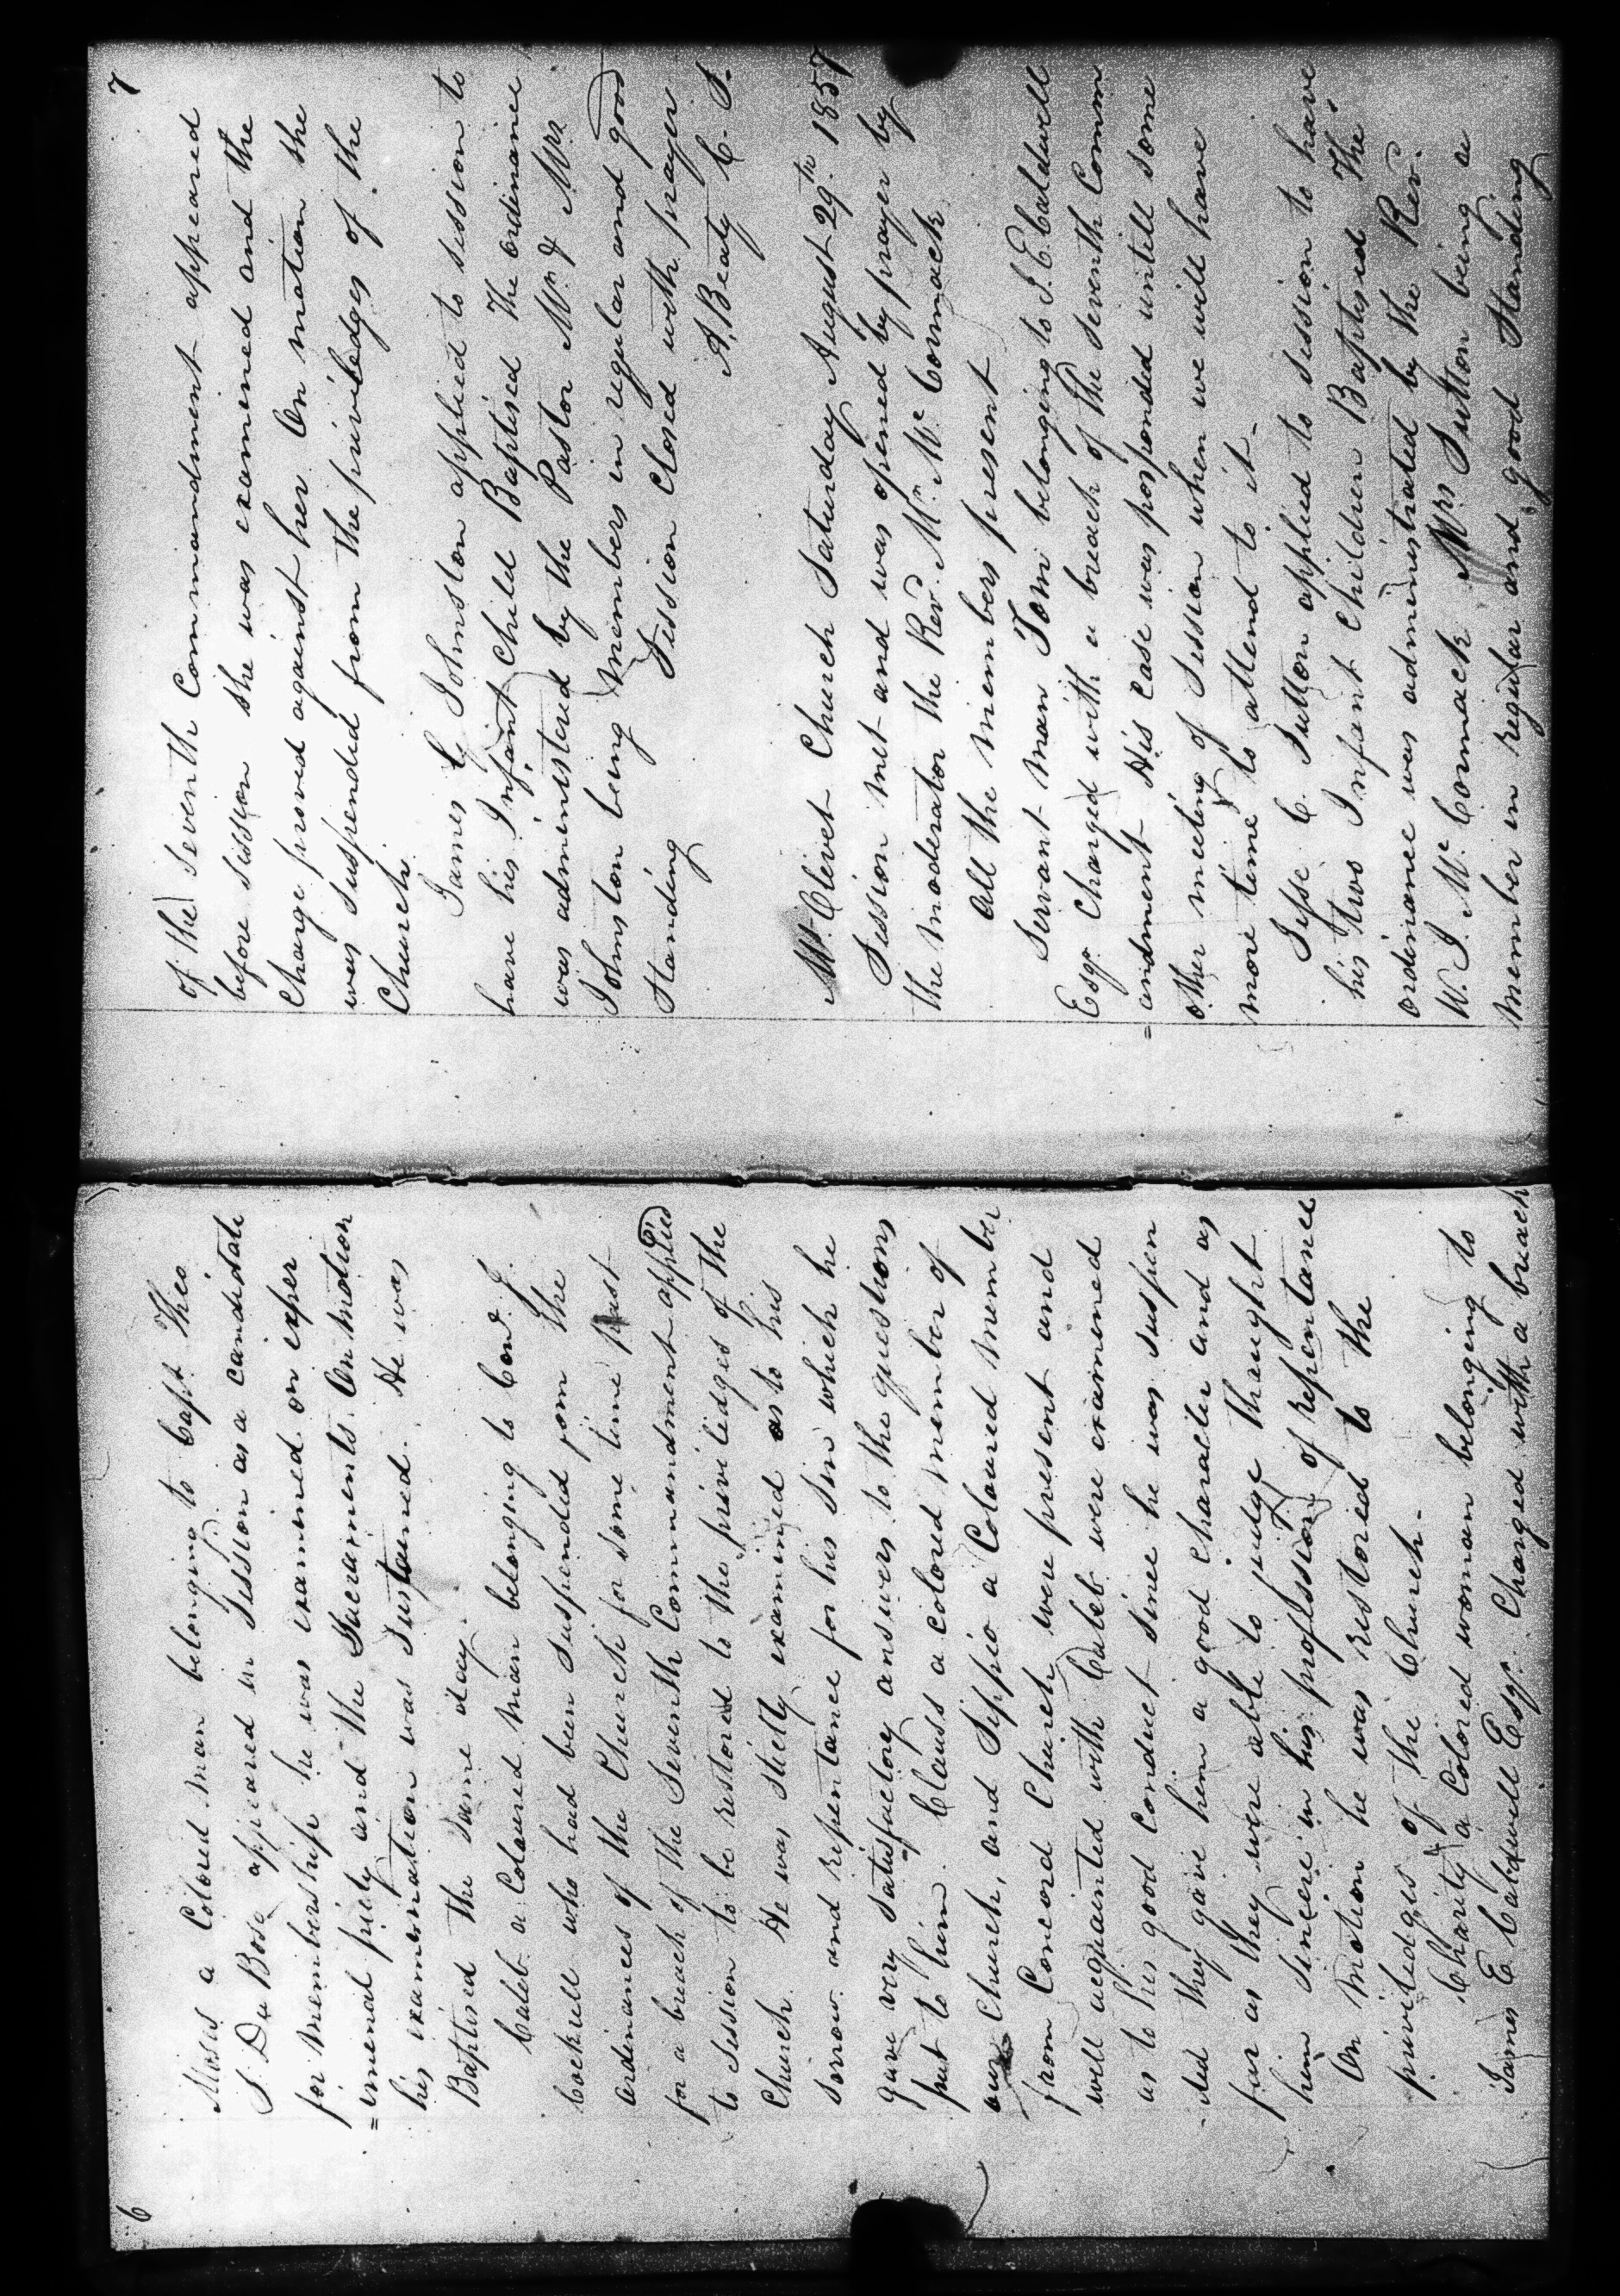 6
Moses a Colored man belonging to Capt. Theo.
S. Du Bose appeared in Session as a candidate
for membership he was examined on exper
=imenal piety and the Sacraments. On motion
his examination was Sustained. He was
Baptised the same day.
Caleb a Coloured man belonging to Cond. J.
Cockrell who had been suspended from the
ordinances of the Church for some time past
for a breach of the Seventh Commandment applied
to Session to be restored to the priviledges of the
Church. He was strictly examined as to his
sorrow and repentance for his sin which he
gave very satisfactory answers to the questions
put to him. Clauss a colored member of
our Church, and Sippio a Coloured member
from Concord Church were present and
well acquainted with Caleb were examined
as to his good conduct since he was suspen
-ded they gave him a good character and as
far as they were able to judge thaught
him sincere in his profession of repentance
On motion he was restored to the
priviledges of the Church.
Charity a Colored woman belonging to
James E Caldwell Esqr. Charged with a breach
7
of the Seventh Commandment appeared
before session she was examined and the
Charge proved against her. On motion she
was suspended from the priviledges of the
Church.
James G Johnston applied to session to
have his Infant Child Baptised The ordinance
was administered by the Pastor Mr. & Mrs
Johnston being members in regular and good
Standing Session Closed with prayer
A. Beaty C. S.
Mt. Olivet Church Saturday August 29th 1857
Session met and was opened by prayer by
the moderator the Rev. Mr. Mc Cormack
All the members present
Servant man Tom belonging to J. E. Caldwell
Esqr Charged with a breach of the Seventh Comm
=andment His case was posponded untill some
other meeting of Session when we will have
more time to attend to it-
Jesse C. Sutton applied to session to have
his two Infant Children Baptised The
ordinance was administrated by the Rev.
W. J. Mc Cormack Mrs Sutton being a
member in regular and good Standing